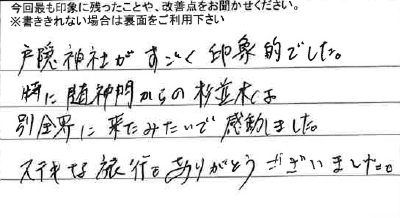 今回最も印象に残ったことや、改善点をお聞かせください。
※書ききれない場合は裏面をご利用下さい
戸隠神社がすごく印象的でした。
特に随神門からの杉並木は
別全界に来たみたいで感動しました。
ステキな旅行をありがとうございました。